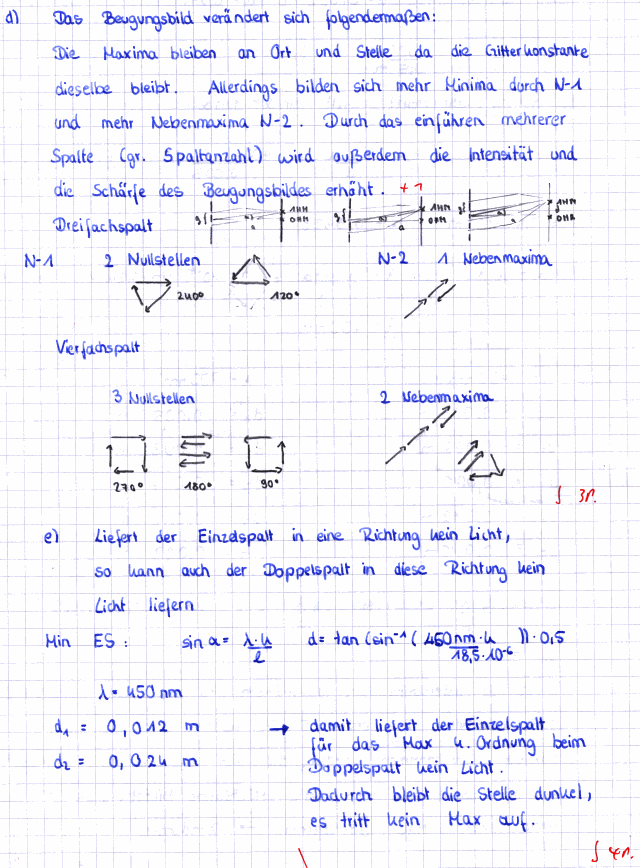 d) Das Beugungsbild verändert sich folgendermaßen:
Die Maxima bleiben an Ort und Stelle da die Gitterkonstante
dieselbe bleibt. Allerdings bilden sich mehr Minima durch N-1
und mehr Nebenmaxima N-2. Durch das einführen mehrerer
Spalte (gr. Spaltanzahl) wird außerdem die Intensität und
die Schärfe des Beugungsbildes erhöht. +1
Dreifachspalt g{ a 1HM 0HM g{ a 1HM 0HM g{ a 1HM 0HM
N-1 2 Nullstellen N-2 1 Nebenmaxima
240° 120°
Vierfachspalt
3 Nullstellen 2 Nebenmaxima
270° 180° 90°
3P.
e) Liefert der Einzelspalt in eine Richtung kein Licht,
so kann auch der Doppelspalt in diese Richtung kein
Licht liefern
Min ES: sin α = λ·k/l d = tan (sin⁻¹ (450nm·k/18,5·10⁻⁶)) · 0,5
λ = 450 nm
d₁ = 0,012 m → damit liefert der Einzelspalt
für das Max 4. Ordnung beim
d₂ = 0,024 m Doppelspalt kein Licht.
Dadurch bleibt die Stelle dunkel,
es tritt kein Max auf.
4P.